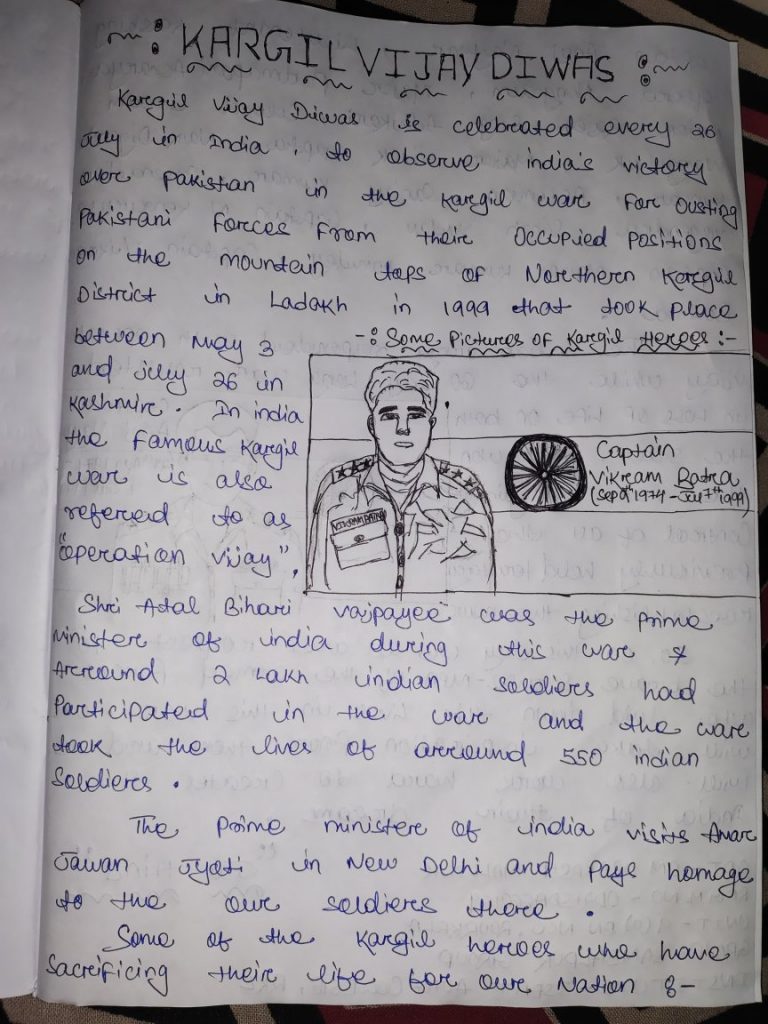 KARGIL VIJAY DIWAS
Kargil Vijay Diwas is celebrated every 26
July in India, to observe india's victory
over pakistan in the kargil war for ousting
pakistani forces from their occupied positions
on the mountain tops of Northern Kargil
District in Ladakh in 1999 that took place
-: Some Pictures of Kargil Heroes :-
between may 3
and july 26 in
Kashmir. In india
the famous Kargil
war is also
referred to as
"operation vijay".
Captain
Vikram Batra
1974 - 1999)
VIKRAM BATRA
Shri Atal Bihari vajpayee was the prime
minister of india during this war &
Arround 2 Lakh indian soldiers had
participated in the war and the war
took the lives of arround 550 indian
Soldiers.
The prime minister of india visits Amar
Jawan Jyoti in New Delhi and paye homage
to the our soldiers there.
Some of the Kargil heroes who have
sacrificing their life for our Nation :-